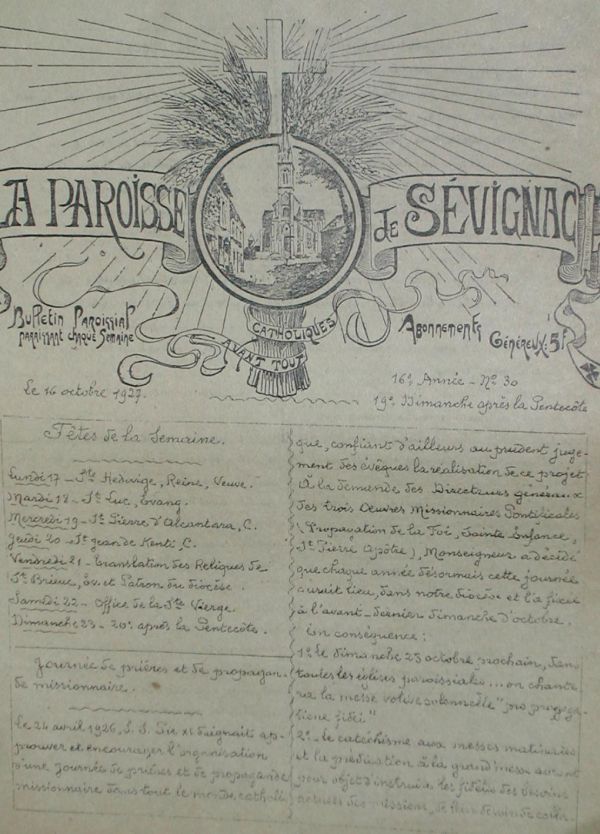 LA PAROISSE
de SÉVIGNAC
Bulletin Paroissial
paraissant chaque semaine
CATHOLIQUES
AVANT TOUT
Abonnements
Généreux: 5f
Le 16 octobre 1927.
16e Année - No 30
19e Dimanche après la Pentecôte
Fêtes de la Semaine.
Lundi 17 - Ste Hedwige, Reine, Veuve.
Mardi 18 - St Luc, Évang.
Mercredi 19 - St Pierre d'Alcantara, C.
Jeudi 20 - St Jean de Kenti, C.
Vendredi 21 - Translation des Reliques de
St Brieuc, év. et Patron du diocèse.
Samedi 22 - Office de la Ste Vierge.
Dimanche 23 - 20e après la Pentecôte.
Journée de prières et de propagan-
de missionnaire.
Le 24 avril 1926, S. S. Pie XI daignait ap-
prouver et encourager l'organisation
d'une Journée de prières et de propagande
missionnaire dans tout le monde catholi-
que, confiant d'ailleurs au prudent juge-
ment des évêques la réalisation de ce projet
A la demande des Directeurs généraux
des trois Oeuvres Missionnaires Pontificales
(Propagation de la Foi, Sainte Enfance,
St Pierre Apôtre), Monseigneur a décidé
que chaque année désormais cette journée
aurait lieu, dans notre diocèse et l'a fixée
à l'avant-dernier dimanche d'octobre.
En conséquence:
1o le dimanche 23 octobre prochain, dans
toutes les églises paroissiales... on chante-
ra la messe votive solennelle "pro propaga-
tione fidei"
2o le catéchisme aux messes matinales
et la prédication à la grand'messe auront
pour objet d'instruire les fidèles des besoins
actuels des missions, de leur devoir de